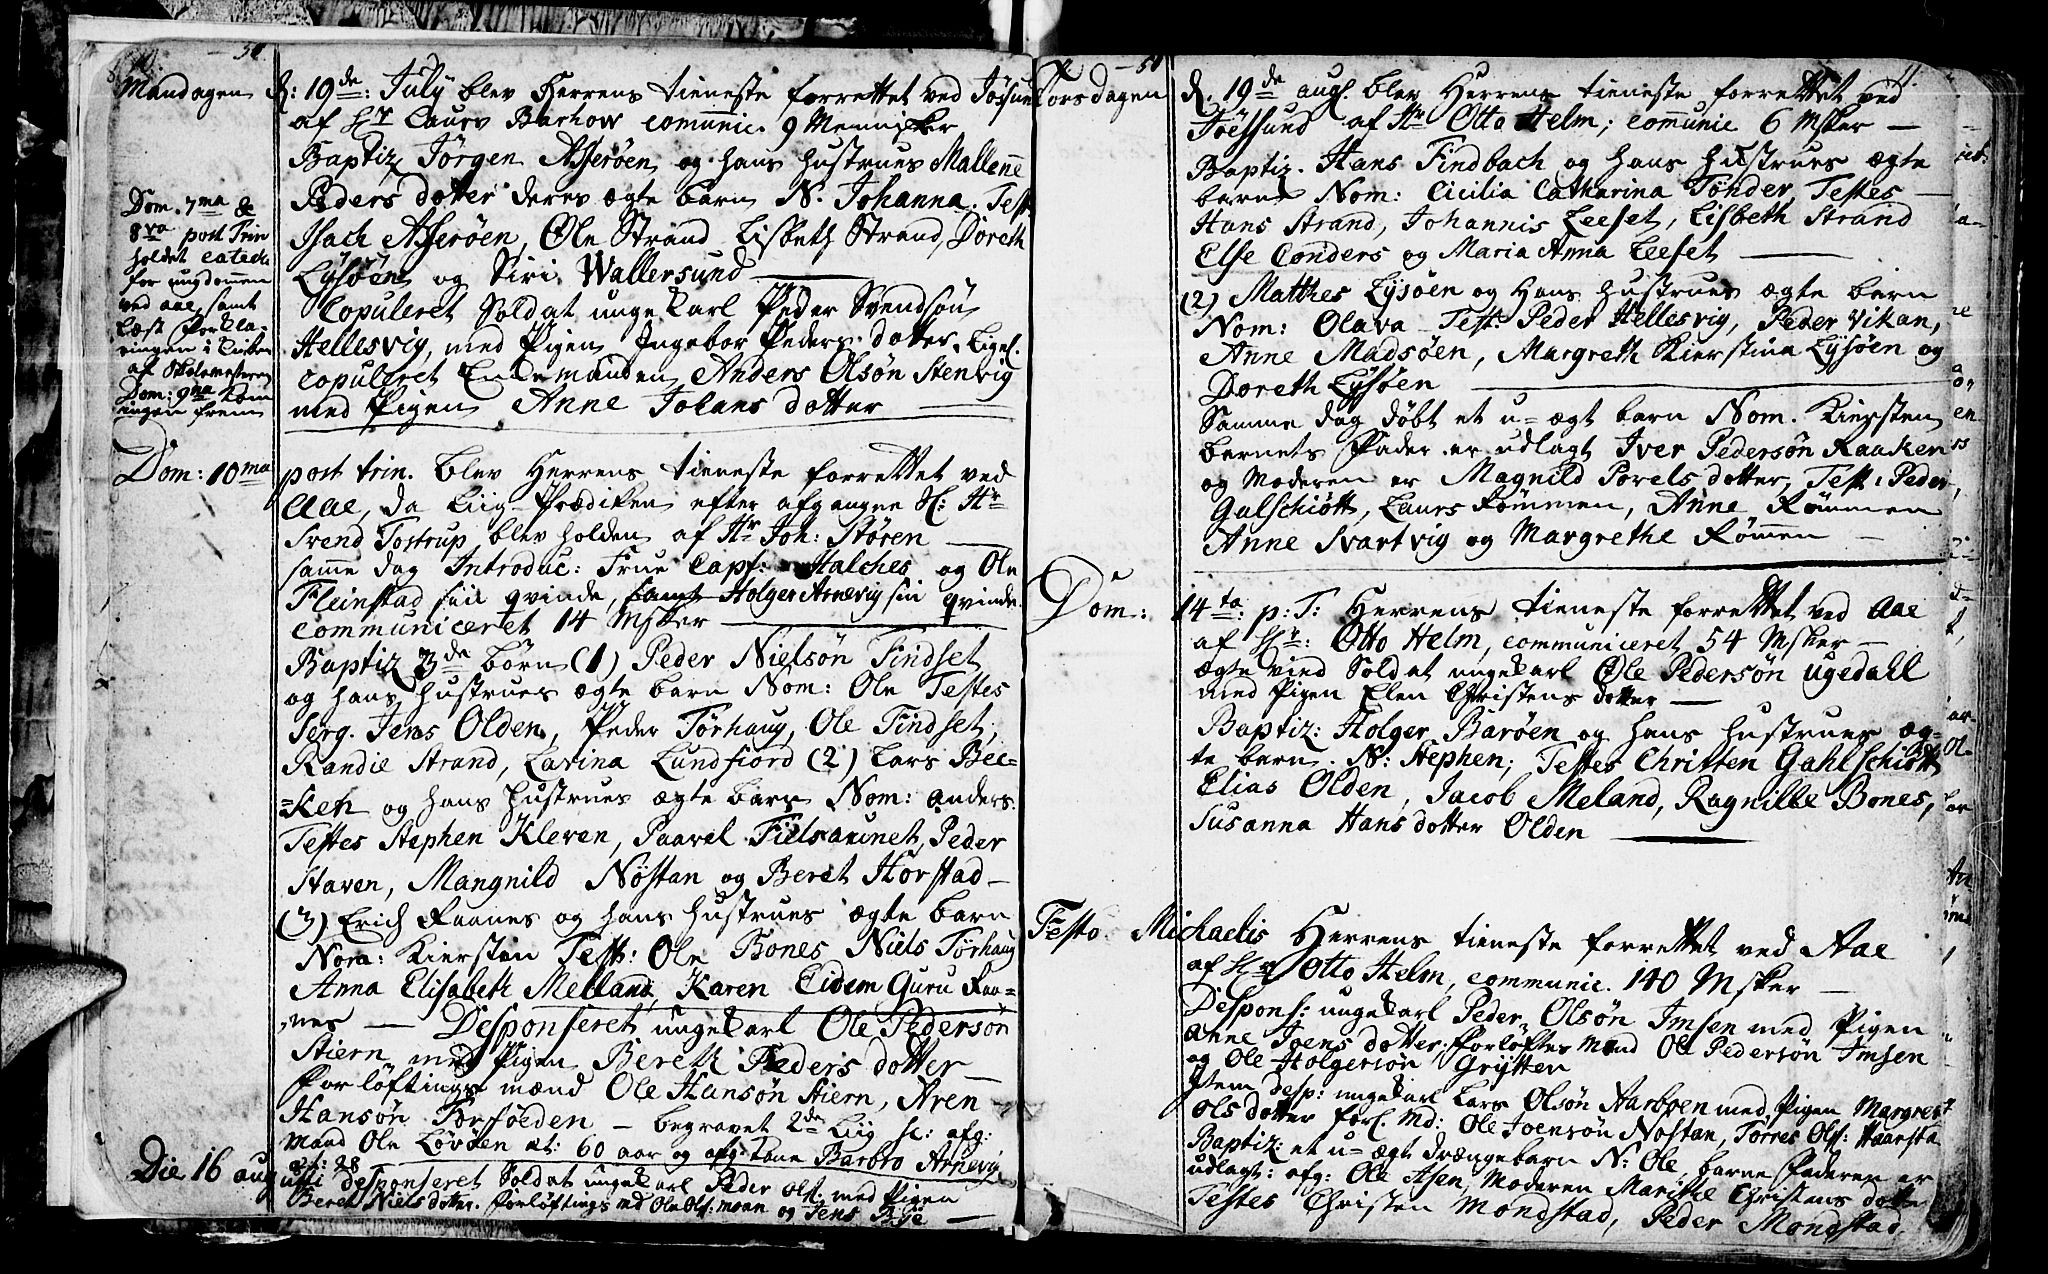 10. - 51
Mandagen d: 19de: July blev Herrens tieneste forrettet ved Jössund
af Hr Laurv Barhow comunic. 9 Mennisker
Baptiz Jörgen Asserøen og hans Hustrues Mallene
Peders dotter deres ægte barn N. Johanna. Test
Isach Asserøen, Ole Strand Lisbeth Strand, Doreth
Lÿsøen og Siri Wallersund
Copuleret Soldat ungekarl Peder Svendsøn
Hellesvig, med Pigen Ingebor Peders dotter. Liges.
copuleret Enkemanden Anders Olsøn Stenvig
med Pigen Anne Johans dotter
Dom. 7ma &
8va post Trin
holdet catech
for ungdommen
ved aae, samt
læst Forkla-
ringen i
af
Dom: 9na kom
ingen frem
Dom: 10ma post trin. blev Herrens tieneste forrettet ved
Aae, da Liig-Prædiken efter afgangne Sl: Hr
Svend Tostrup blev holden af Hr Joh: Stören
samme dag Introduc: Frue Capt: Halches og Ole
Fleinstad sin qvinde, samt Holger Arnevig sin qvinde.
communiceret 14 Msker
Baptiz 3de börn (1) Peder Nielsön Findset
og hans Hustrues ægte barn Nom: Ole Testes
Serg. Jens Olden, Peder Törhaug, Ole Findset,
Randie Strand, Lavina Lundfiord (2) Lars Bee-
=ken og hans Hustrues ægte barn Nom: Anders.
Testes Stephen Kleven, Paavel Fielraunet, Peder
Staven, Mangnild Nøstan og Beret Horstad
(3) Erich Raanes og hans Hustrues ægte barn
Nom: Kiersten Test: Ole Bones Niels Törhaug
Anna Elisabeth Melland, Karen Eidem Guru Raa=
=nes — Desponseret ungekarl Ole Pedersøn
Stiern med Pigen Bereth Peders dotter
Forløftings mænd Ole Hansøn Stiern, Aren
Hansøn — begravet 2de Liig sc: afg:
mand Ole Løvøen æt: 60 aar og afg: kone Barbro Arnevig
æt: 28
Die 16 augusti desponseret Soldat ungekarl Peder Ols: med Pigen
Beret Niels dotter. Forløftings md Ole Ols: moan og Jens Bÿe
- 51 11.
Torsdagen d. 19de aug. blev Herrens tieneste forrettet ved
Jöessund af Hr Otto Helm; comunic 6 Msker —
Baptiz. Hans Findbach og hans Hustrues ægte
barn Nom: Cicilia Catharina Tönder, Testes
Hans Strand, Johannis Leeset, Lisbeth Strand
Else Conders og Maria Anna Leeset
(2) Matthes Lÿsøen og Hans Hustrues ægte barn
Nom: Olava Test: Peder Hellesvig, Peder Vikan,
Anne Madsøen, Margreth Kierstina Lÿsøen og
Doreth Lÿsøen
Samme dag døbt et u=ægt barn Nom. Kiersten
barnets Fader er udlagt Iver Pedersøn Raaken
og Moderen er Magnild Porels dotter, Test: Peder
Galschiött, Laurs Rømmen, Anne Rømmen
Anne Svartvig og Margrethe Römen
Dom: 14ta: p: T: Herrens tieneste forrettet ved Aae
af Hr: Otto Helm, communiceret 54 Msker —
ægte vied Soldat ungekarl Ole Pedersøn Ugedall
med Pigen Elen Christens dotter
Baptiz: Holger Barøen og hans Hustrues æg-
te barn. N: Stephen; Testes Christen Gahlschiött
Elias Olden, Jacob Meland, Ragnille Bones,
Susanna Hans dotter Olden
Festo Michaelis Herrens tieneste forrettet ved Aae
af Hr Otto Helm, communic. 140 Msker —
Despons: ungekarl Peder Olsön Imsen med Pigen
Anne Joens dotter, Forløftes Mænd Ole Pedersøn Imsen
og Ole Holgersön Grÿtten
Item desp: ungekarl Lars Olsön Aarboen med Pigen Margret
Ols dotter forl. Md: Ole Joensøn Nostan, Torres Ols: Haarsta
Baptiz: et u=ægt drængebarn N: Ole, barne Faderen er
udlagt: afg: Ole Asen, Moderen Marithe Christens dotter
Testes Christen Mondstad, Peder Mondstad,